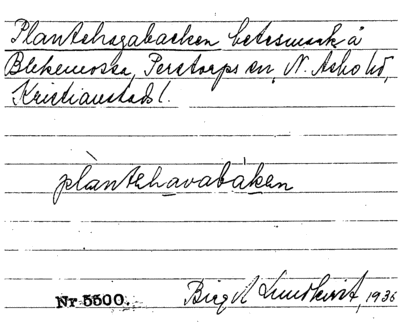 Plantehagabacken betesmark å
Blekemossa, Perstorps sn, N. Åsbo hd,
Kristianstads l.
plàntəhavabáken
Nr 5500. Birgit Lundkvist, 1936